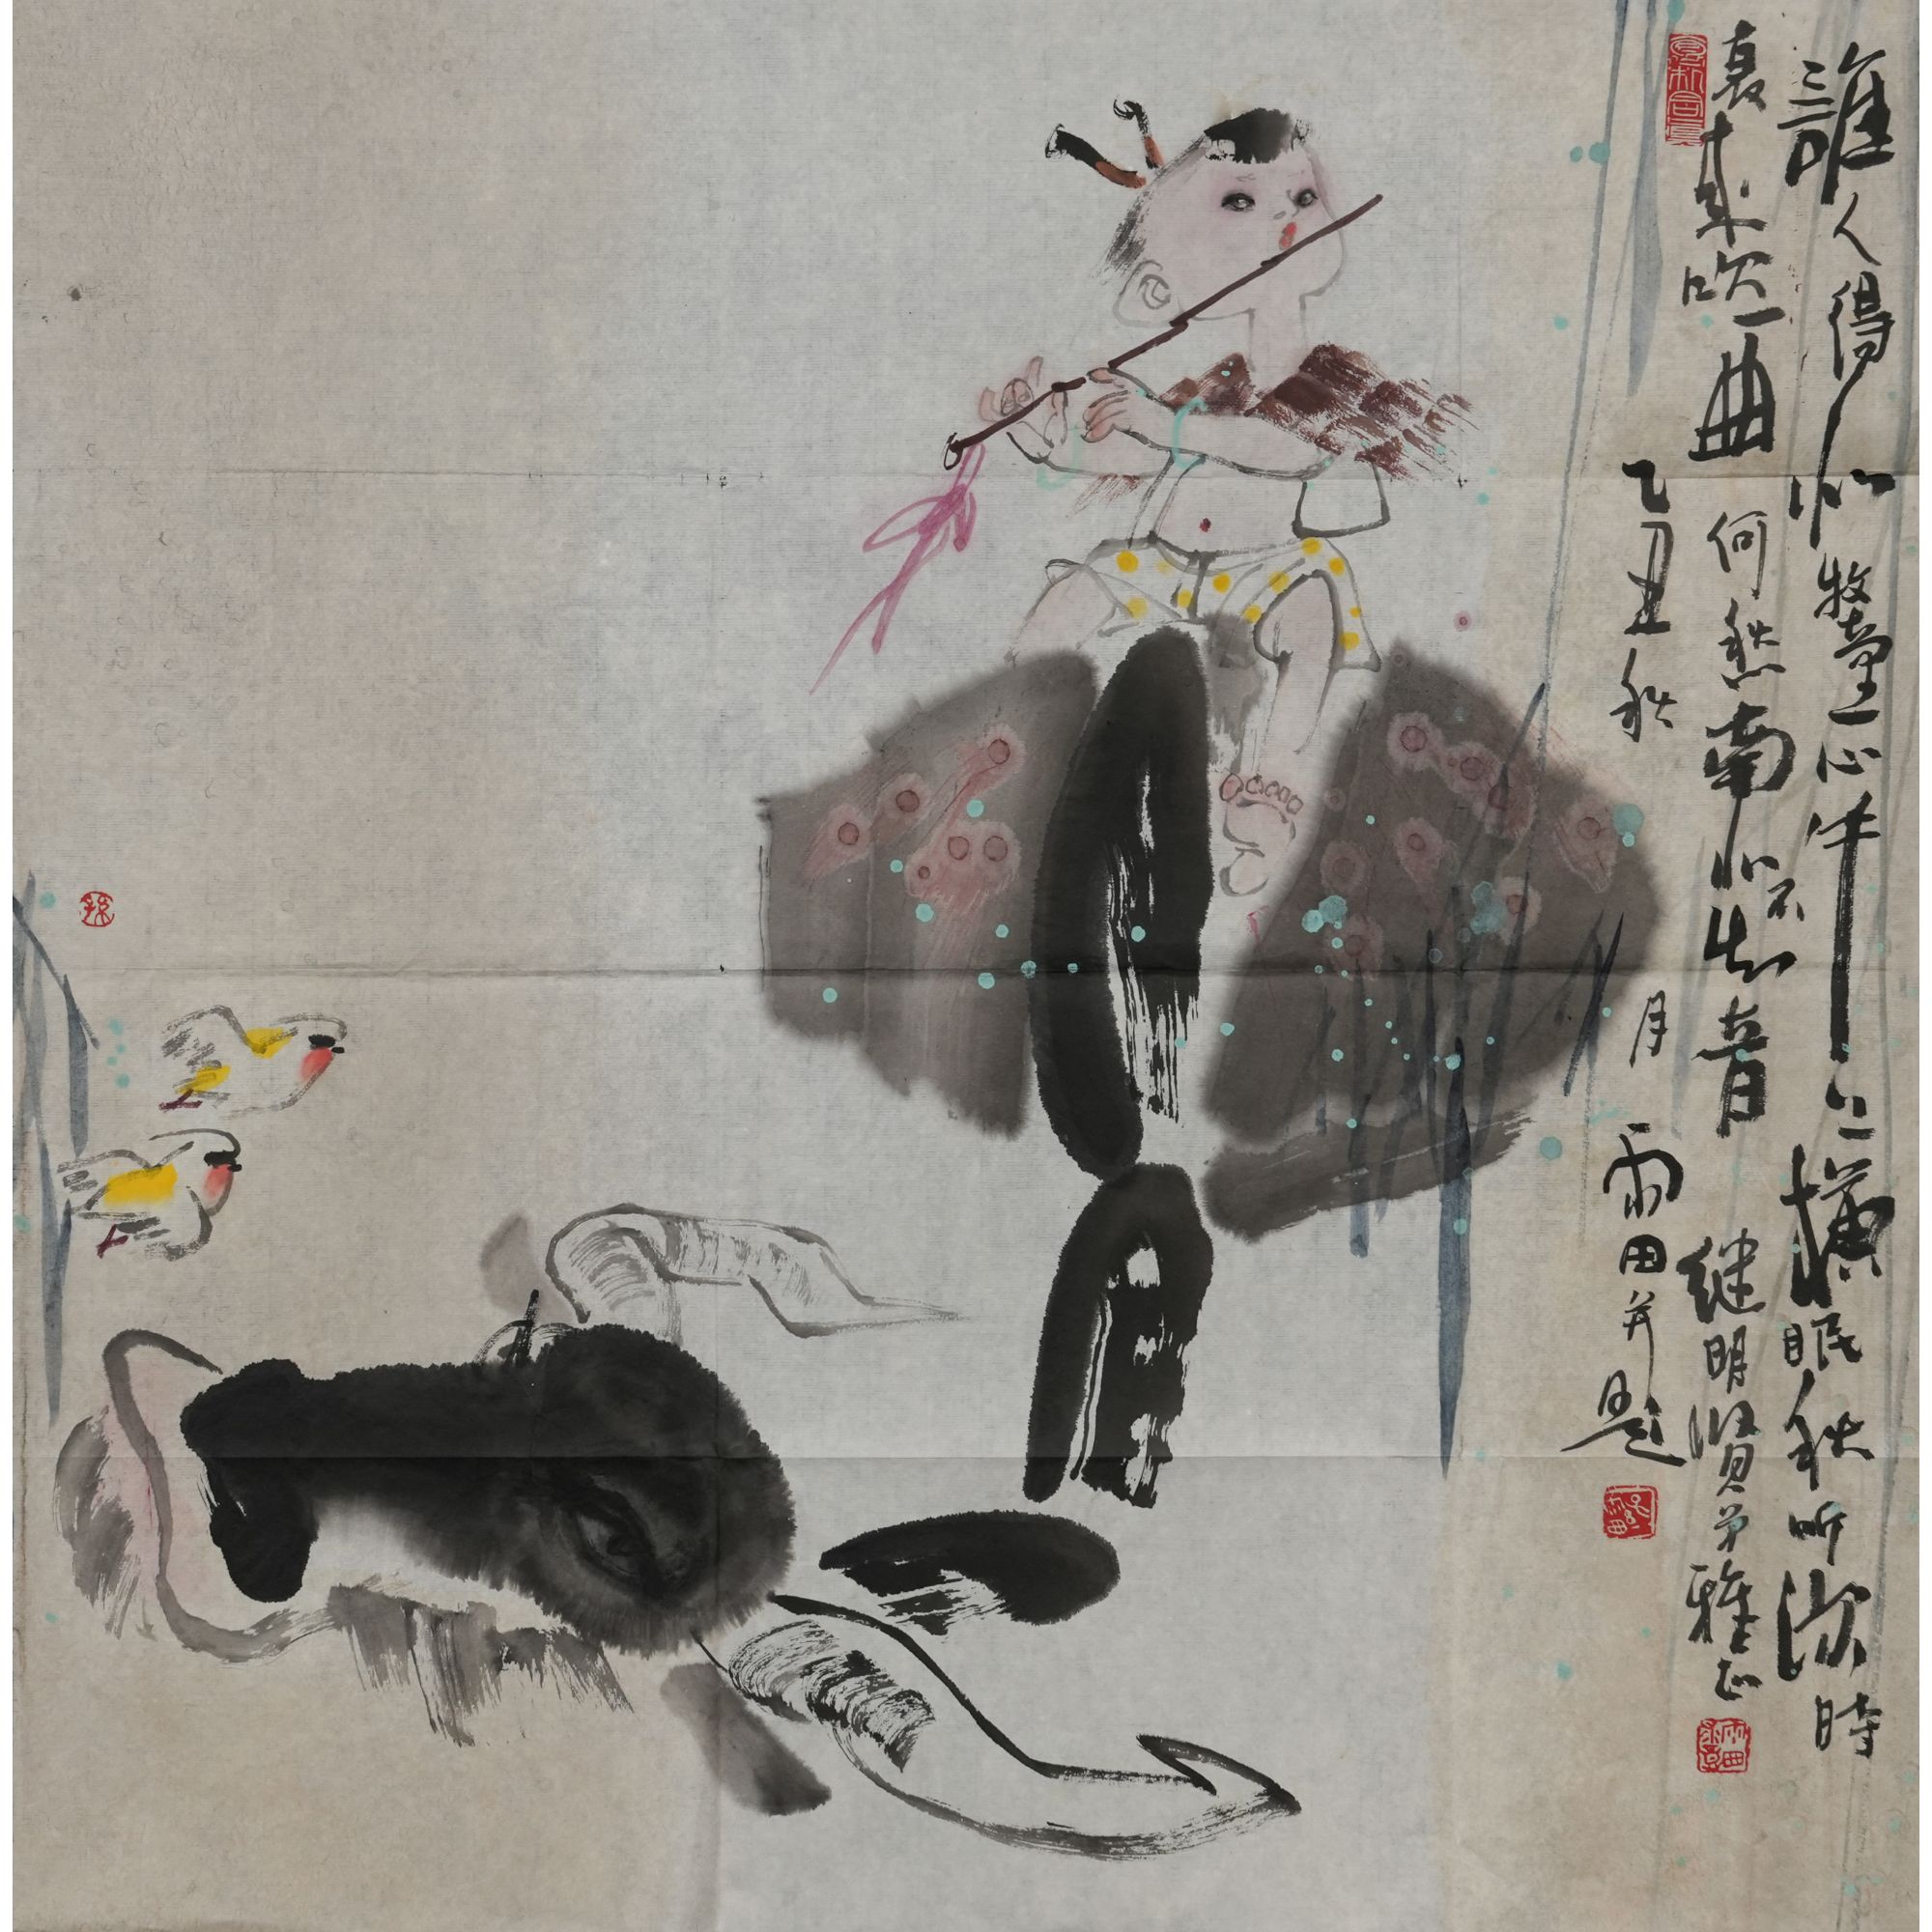 誰人得似牧童心牛上橫眠秋听深時
复來吹一曲何愁南北不知音 继明賢弟雅正
乙丑秋月雨田并題